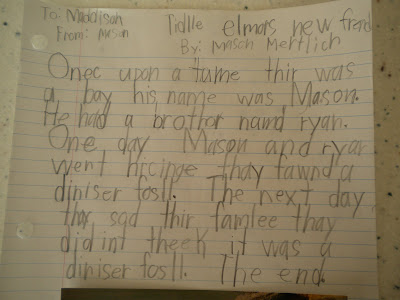 To: Maddison
From: Mason
Tidlle elmors new frend
By: Mason Mertlich
Onec upon a tame thir was
a boy his name was Mason.
He had a brothor namd ryan.
One day Mason and ryan
went hicinge thay fawnd a
diniser fosll. The next day
thay sad thir famlee thay
did int theek it was a
diniser fosll. The end.